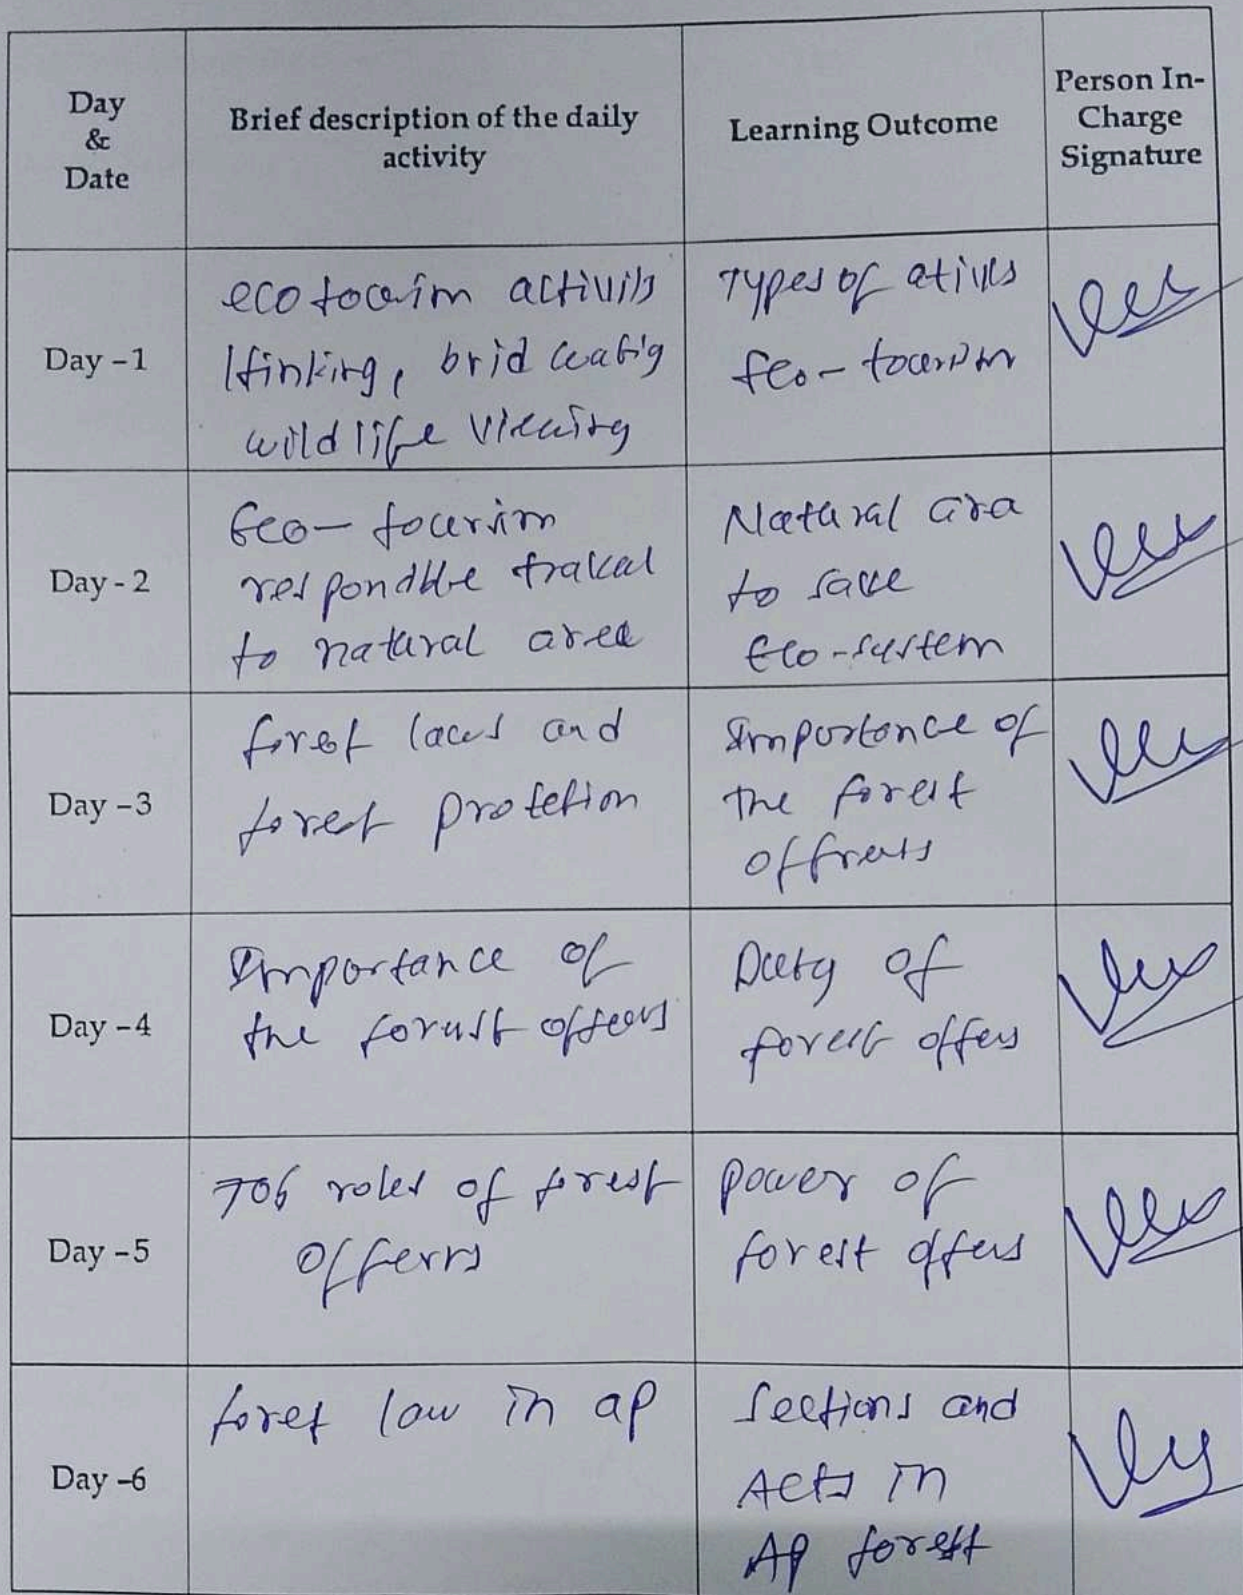 Day
&
Date
Brief description of the daily
activity
Learning Outcome
Person In-
Charge
Signature
Day -1
eco tourim activils
Hinking, brid watig
wild life viewing
Types of ativis
Eco- tourism
Day - 2
Eco- tourim
responsible traval
to natural area
Natural ara
to save
Eco-system
Day -3
forest laws and
forest protetion
Importance of
the forest
Day -4
Importance of
the forust offeers
Duty of
forest offers
Day -5
Job roles of forest
offerrs
power of
forest offers
Day -6
foret law in ap
Sections and
Acts in
AP forest